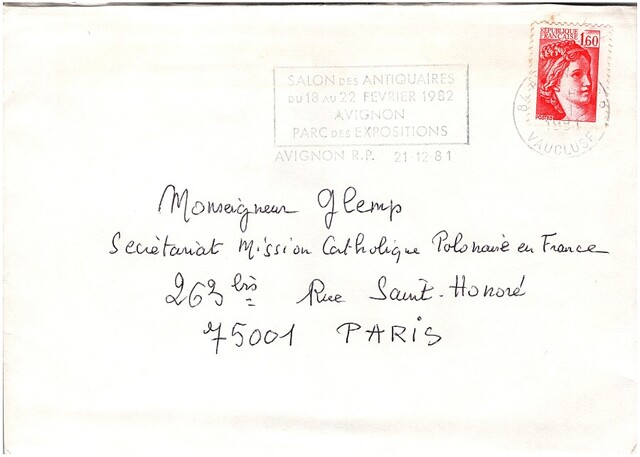 RÉPUBLIQUE
FRANÇAISE
1,60
SALON DES ANTIQUAIRES
DU 18 AU 22 FEVRIER 1982
AVIGNON
PARC DES EXPOSITIONS
AVIGNON R.P. 21-12 81
84
1981
VAUCLUSE
Monseigneur Glemp
Secrètariat Mission Catholique Polonaise en France
263 bis Rue Saint-Honoré
75001 PARIS